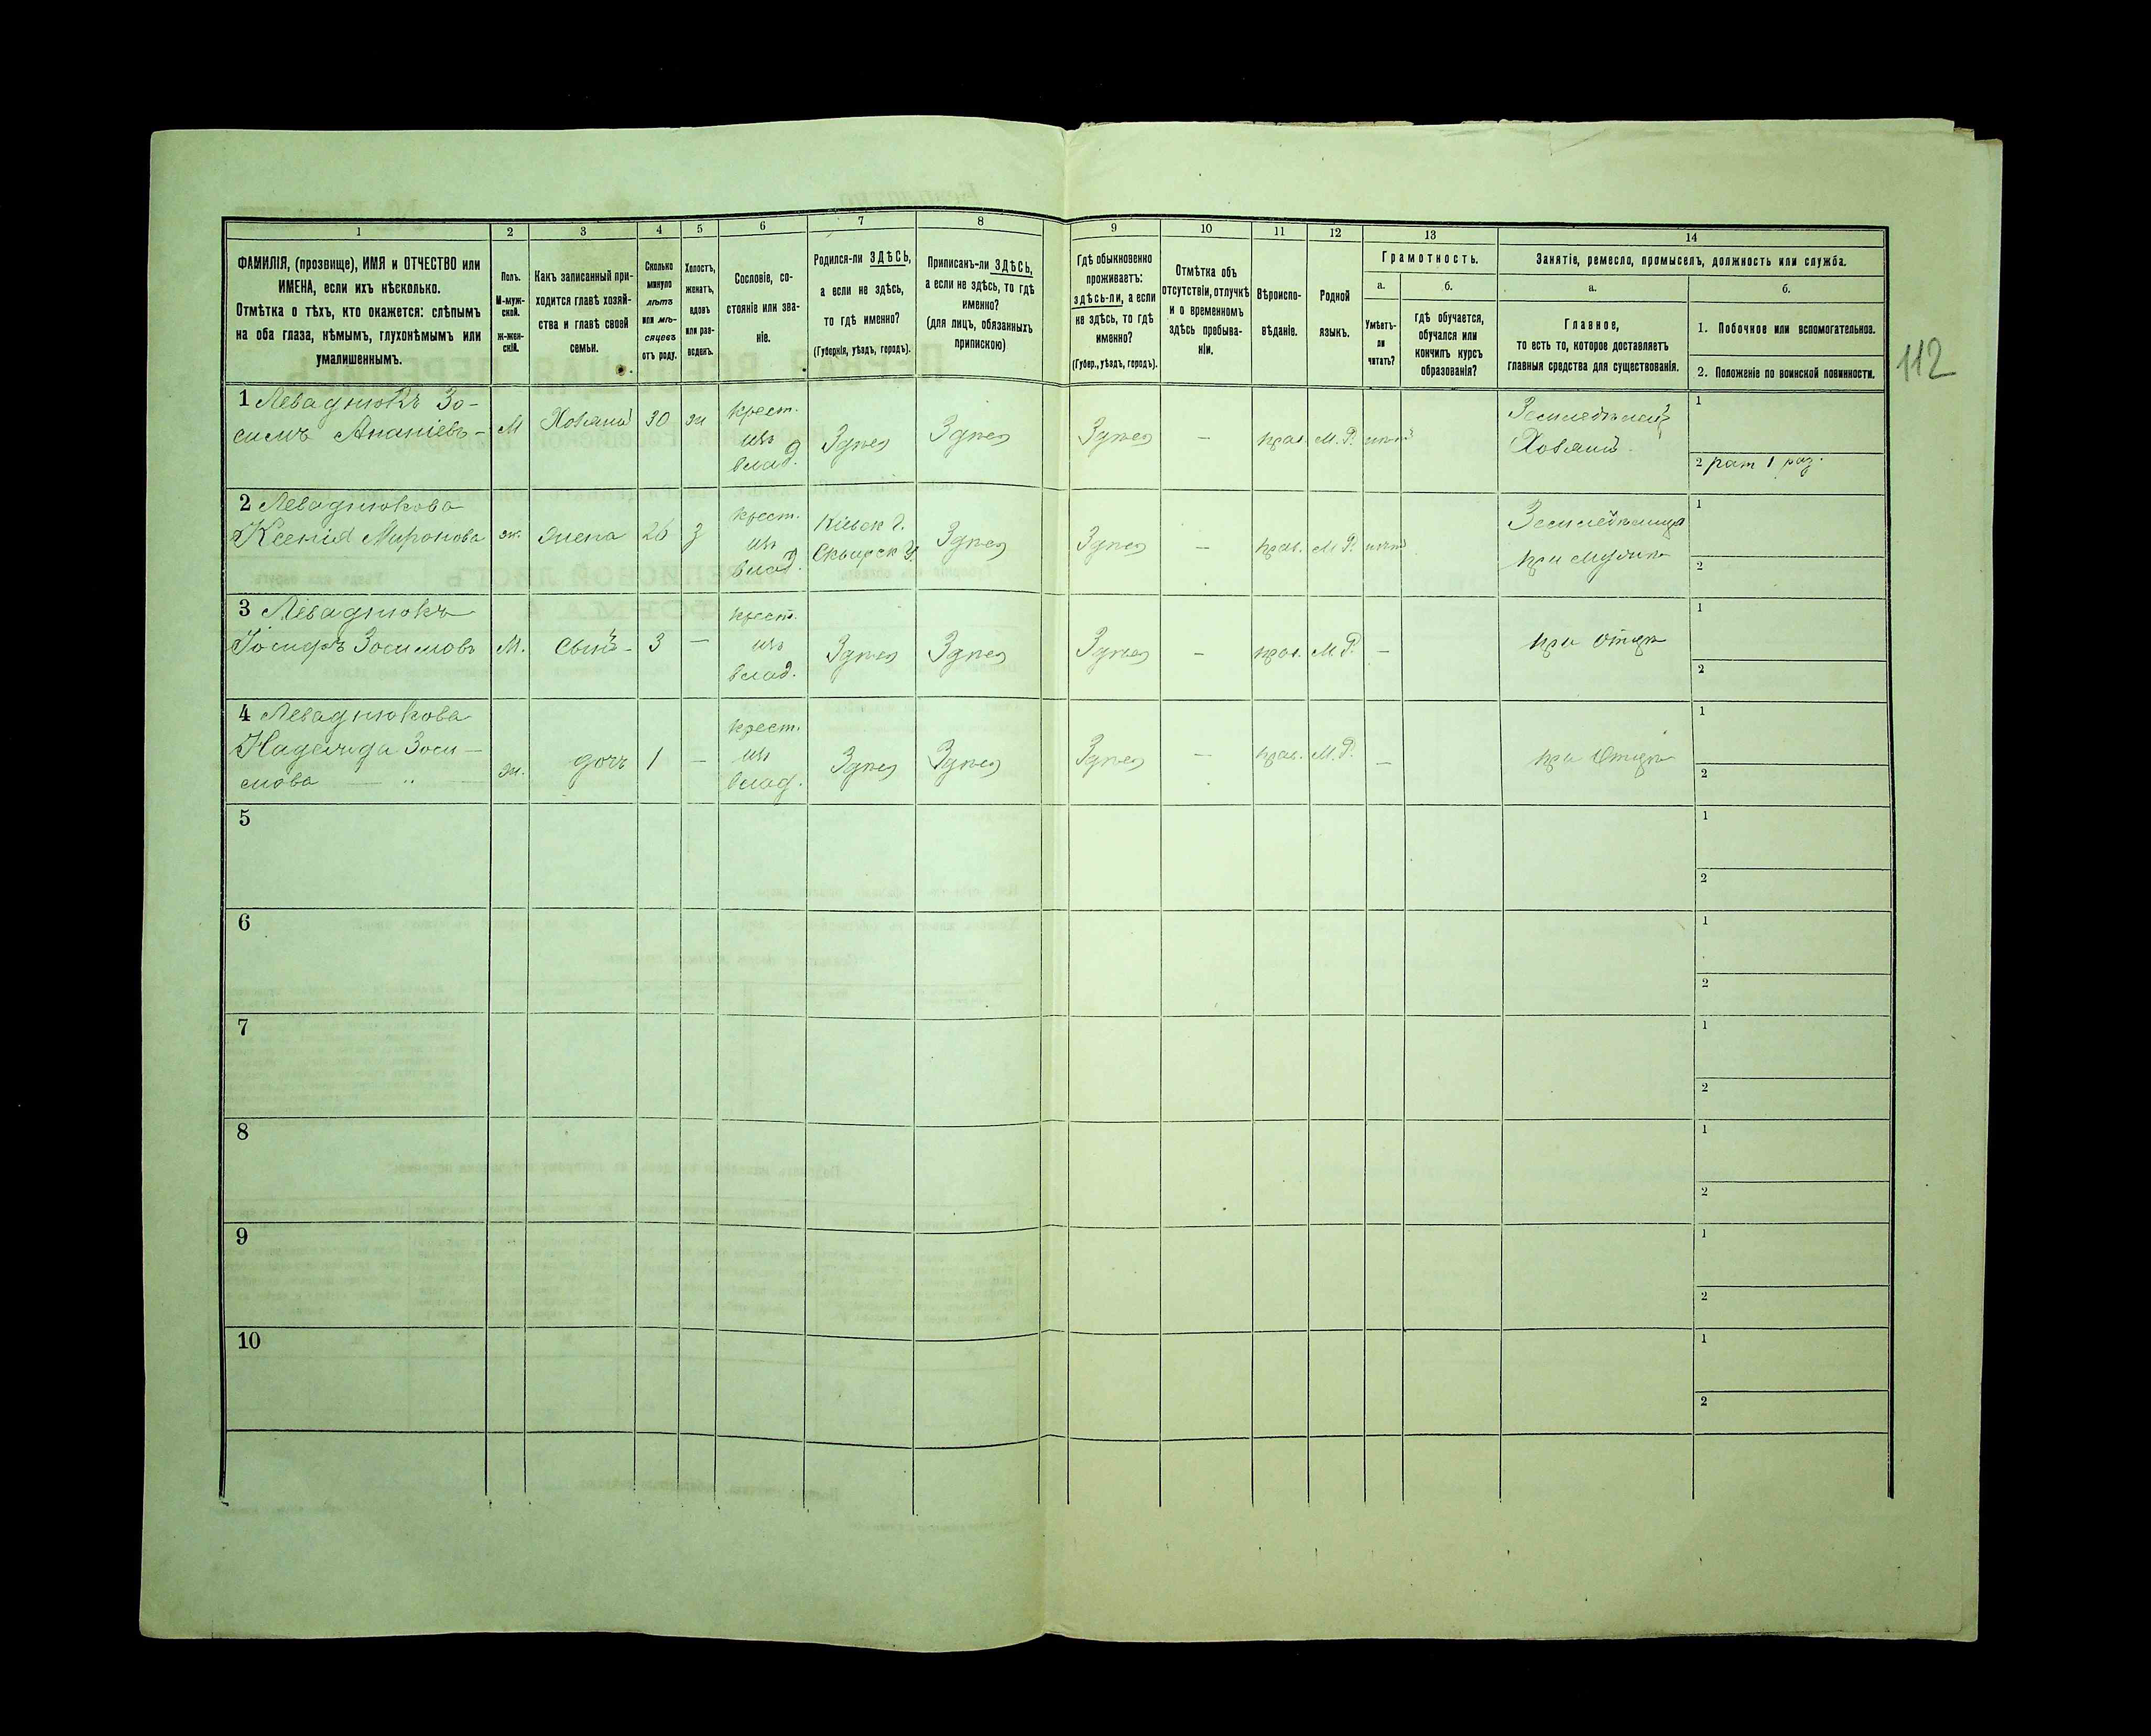 1
2
3
4
5
6
7
8
9
10
11
12
13
14
ФАМИЛІЯ, (прозвище), ИМЯ и ОТЧЕСТВО или
ИМЕНА, если ихъ нѣсколько.
Отмѣтка о тѣхъ, кто окажется: слѣпымъ
на оба глаза, нѣмымъ, глухонѣмымъ или
умалишеннымъ.
Полъ.
М-муж-
ской.
Ж-жен-
скій.
Какъ записанный при-
ходится главѣ хозяй-
ства и главѣ своей
семьи.
Сколько
минуло
лѣтъ
или мѣ-
сяцевъ
отъ роду.
Холостъ,
женатъ,
вдовъ
или раз-
веденъ.
Сословіе, со-
стояніе или зва-
ніе.
Родился-ли ЗДѢСЬ,
а если не здѣсь,
то гдѣ именно?
(Губернія, уѣздъ, городъ).
Приписанъ-ли ЗДѢСЬ,
а если не здѣсь, то гдѣ
именно?
(для лицъ, обязанныхъ
припискою)
Гдѣ обыкновенно
проживаетъ:
здѣсь-ли, а если
не здѣсь, то гдѣ
именно?
(Губер., уѣздъ, городъ).
Отмѣтка объ
отсутствіи, отлучкѣ
и о временномъ
здѣсь пребыва-
ніи.
Вѣроиспо-
вѣданіе.
Родной
языкъ.
Грамотность.
а.
Умѣетъ-
ли
читать?
б.
гдѣ обучается,
обучался или
кончилъ курсъ
образованія?
Занятіе, ремесло, промыселъ, должность или служба.
а.
Главное,
то есть то, которое доставляетъ
главныя средства для существованія.
б.
1. Побочное или вспомогательное.
2. Положеніе по воинской повинности.
112
1 Леваднюкъ Зо-
симъ Ананіевъ-
М
Хозяинъ
30
ж
крест.
изъ
влад.
Здѣсь
Здѣсь
Здѣсь
—
прав.
М. Р.
нѣтъ
Земледѣлецъ
Хозяинъ
1
2 рат 1 раз.
2 Леваднюкова
Ксенія Миронова
ж.
жена
26
з
крест.
изъ
влад.
Кіевск Г.
Сквирск У.
Здѣсь
Здѣсь
—
прав.
М. Р.
нѣтъ
Земледѣлица
при мужѣ
1
2
3 Леваднюкъ
Іосифъ Зосимовъ
М.
сынъ-
3
—
крест.
изъ
влад.
Здѣсь
Здѣсь
Здѣсь
—
прав.
М. Р.
—
при отцѣ
1
2
4 Леваднюкова
Надежда Зоси-
мова — " —
ж.
дочь
1
—
крест.
изъ
влад.
Здѣсь
Здѣсь
Здѣсь
—
прав.
М. Р.
—
при отцѣ
1
2
5
1
2
6
1
2
7
1
2
8
1
2
9
1
2
10
1
2